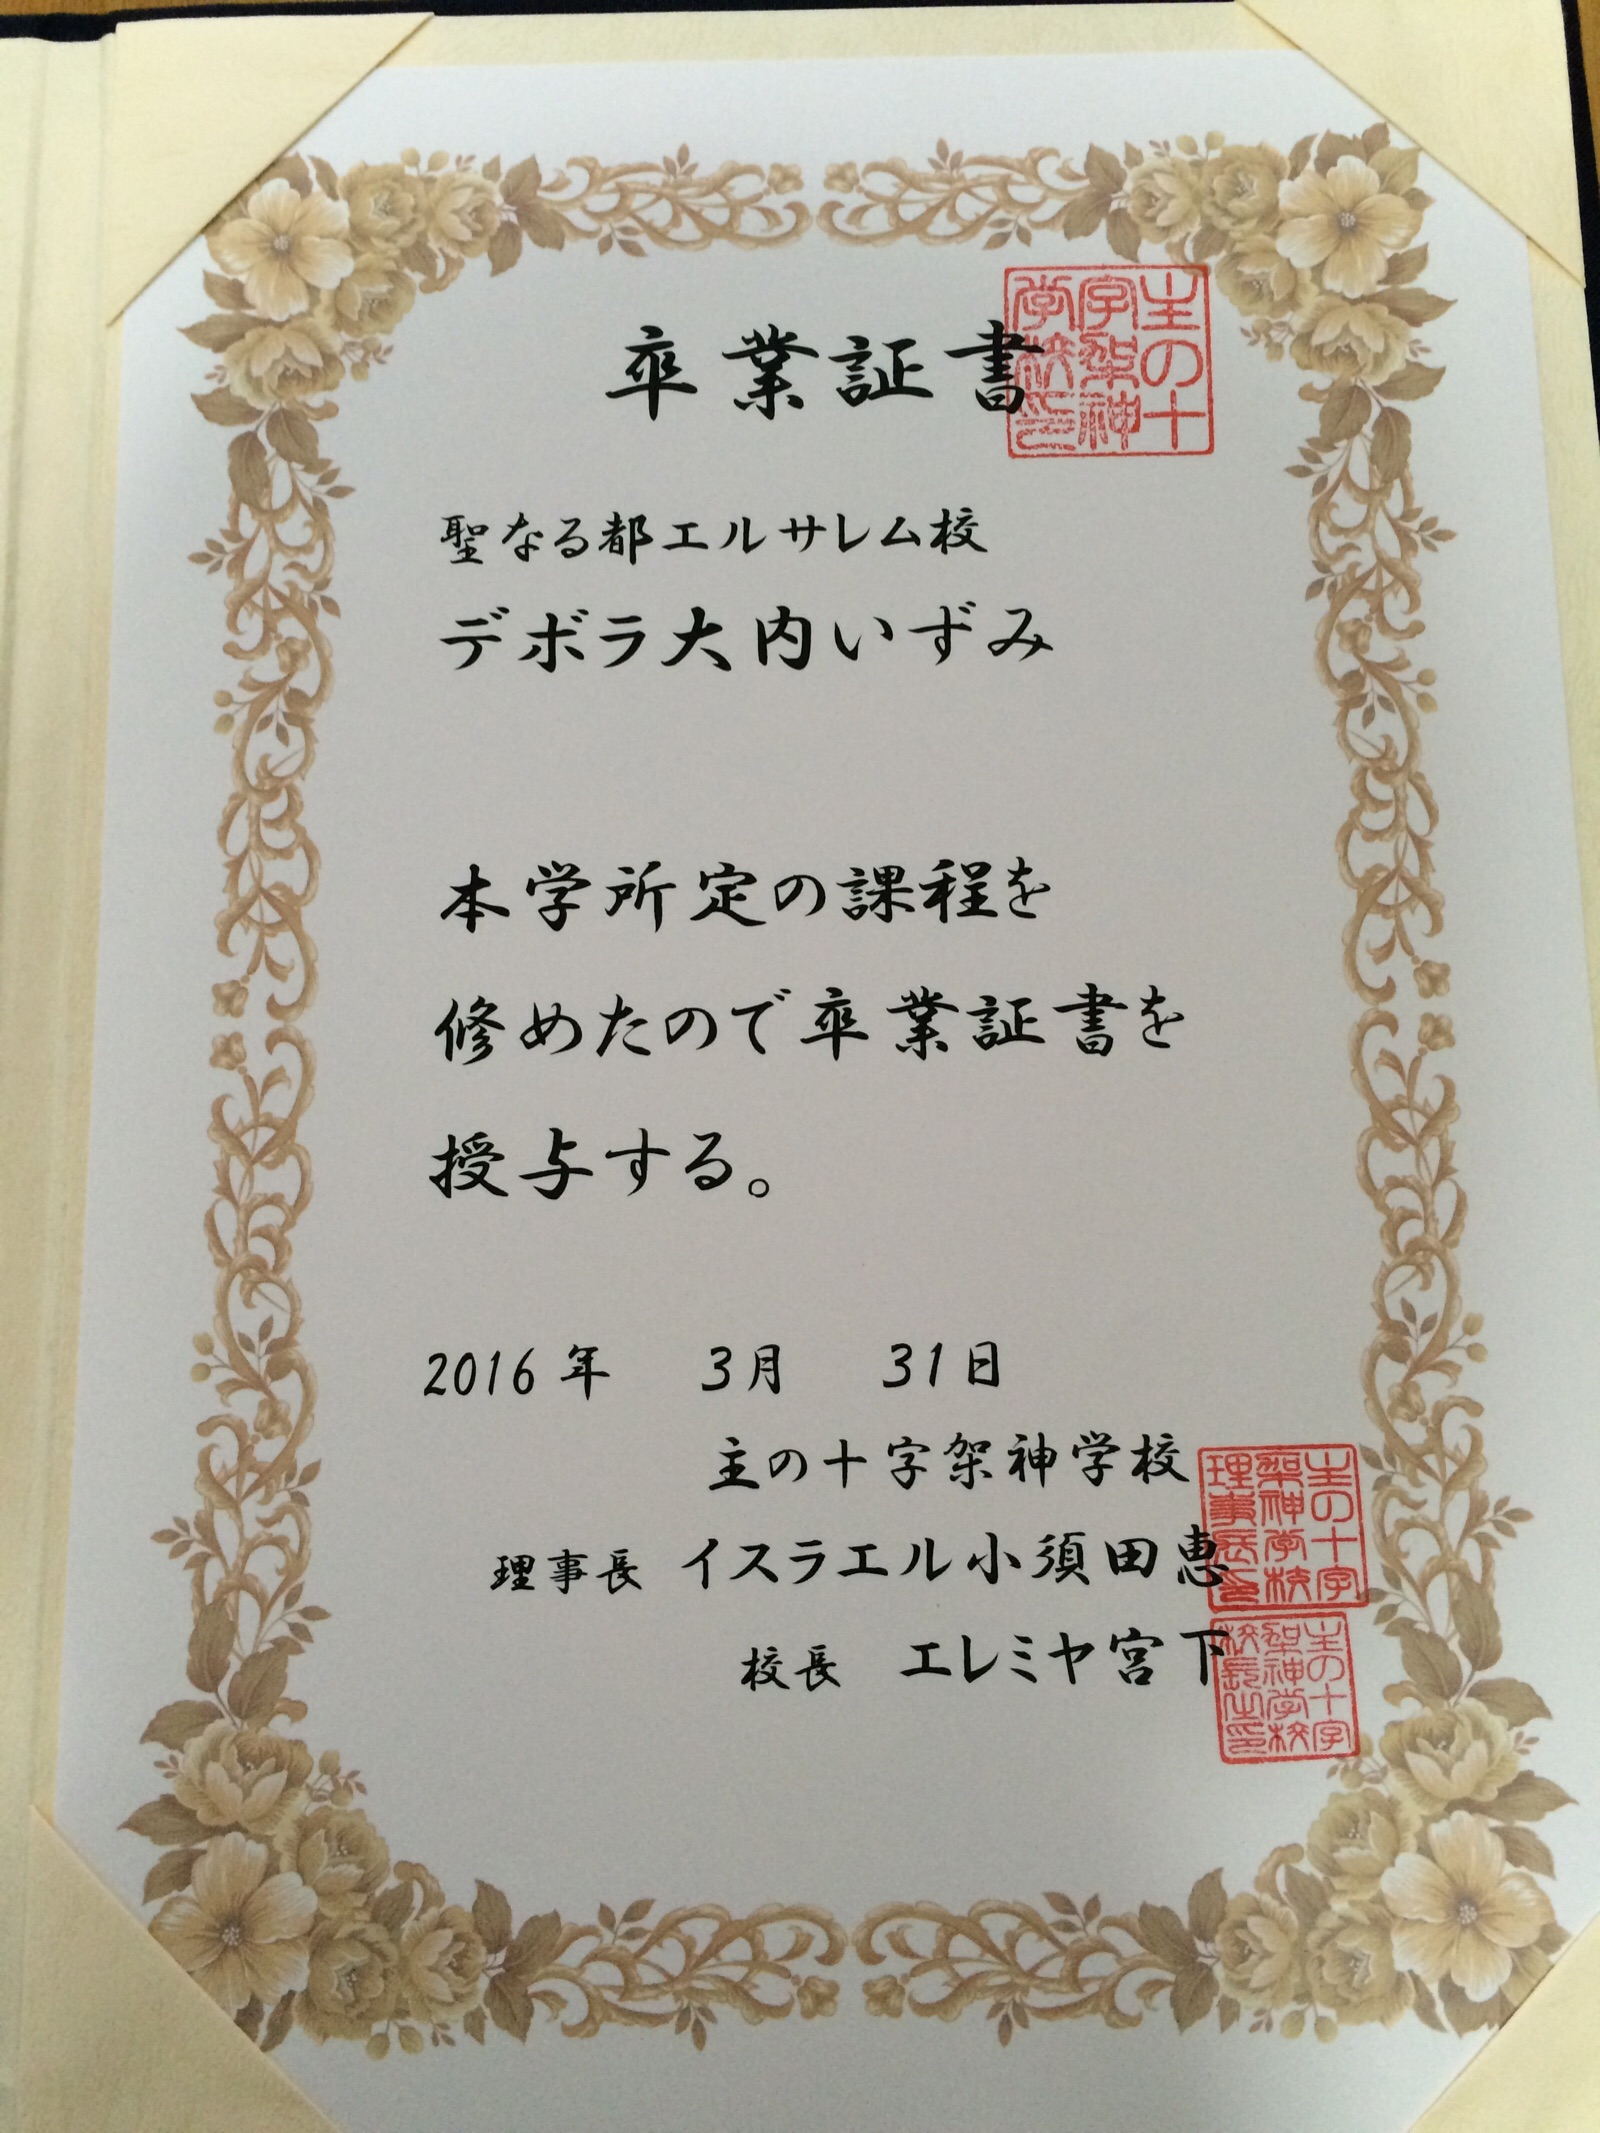 卒業証書
主の十字架神学校印
聖なる都エルサレム校
デボラ大内いずみ
本学所定の課程を
修めたので卒業証書を
授与する。
2016年 3月 31日
主の十字架神学校
理事長 イスラエル小須田恵
主の十字架神学校理事長印
校長 エレミヤ宮下
主の十字架神学校校長之印